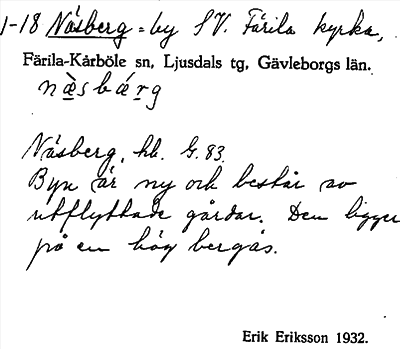 1-18 Näsberg = by S V. Färila kyrka,
Färila-Kårböle sn, Ljusdals tg, Gävleborgs län.
næsbárg
Näsberg, hb. G. 83.
Byn är ny och består av
utflyttade gårdar. Den ligger
på en hög bergås.
Erik Eriksson 1932.